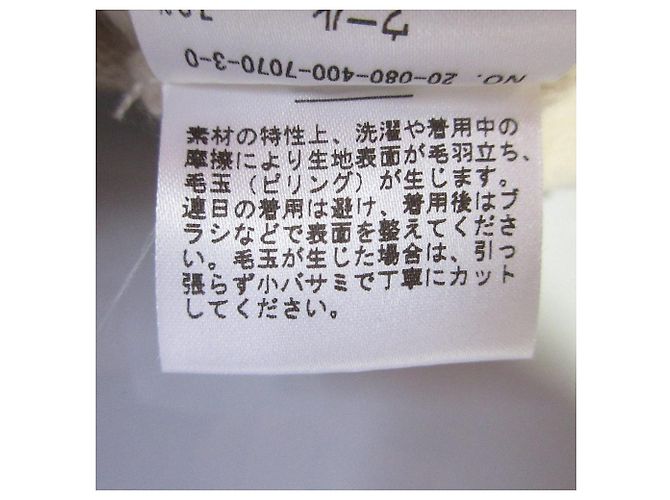 ウール 70%
NO. 20-080-400-7070-3-0
素材の特性上、洗濯や着用中の
摩擦により生地表面が毛羽立ち、
毛玉（ピリング）が生じます。
連日の着用は避け、着用後はブ
ラシなどで表面を整えてくださ
い。毛玉が生じた場合は、引っ
張らず小バサミで丁寧にカット
してください。